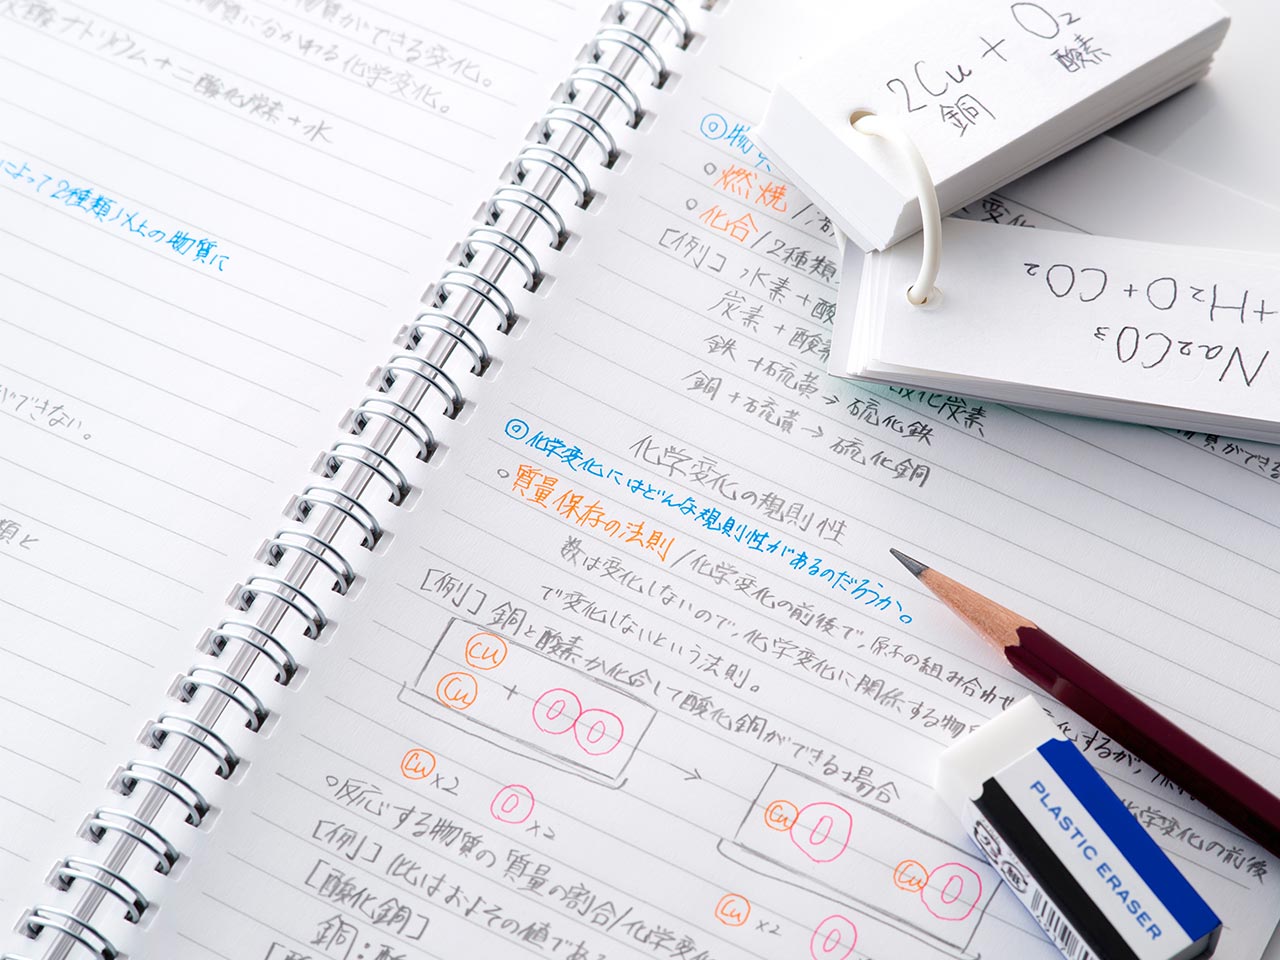 物質ができる変化。
物質に分かれる化学変化。
酸ナトリウム+二酸化炭素+水
によって2種類以上の物質に
ができない。
類と
2Cu + O₂
銅 酸素
Na₂CO₃
+H₂O+CO₂
◎物
○燃焼/
○化合/2種類
[例] 水素+酸
炭素+酸素
酸化炭素
鉄+硫黄→硫化鉄
銅+硫黄→硫化銅
化学変化の規則性
◎化学変化にはどんな規則性があるのだろうか。
○質量保存の法則/化学変化の前後で、原子の組み合わせ
化するが、
数は変化しないので、化学変化に関係する物
化学変化の前後
で変化しないという法則。
[例] 銅と酸素が化合して酸化銅ができる場合
Cu
Cu + O O
→
Cu O
Cu O
Cu ×2 O ×2
Cu ×2 O
○反応する物質の質量の割合/化学変化
[例] 比はおよその値である
[酸化銅]
銅:酸
PLASTIC ERASER